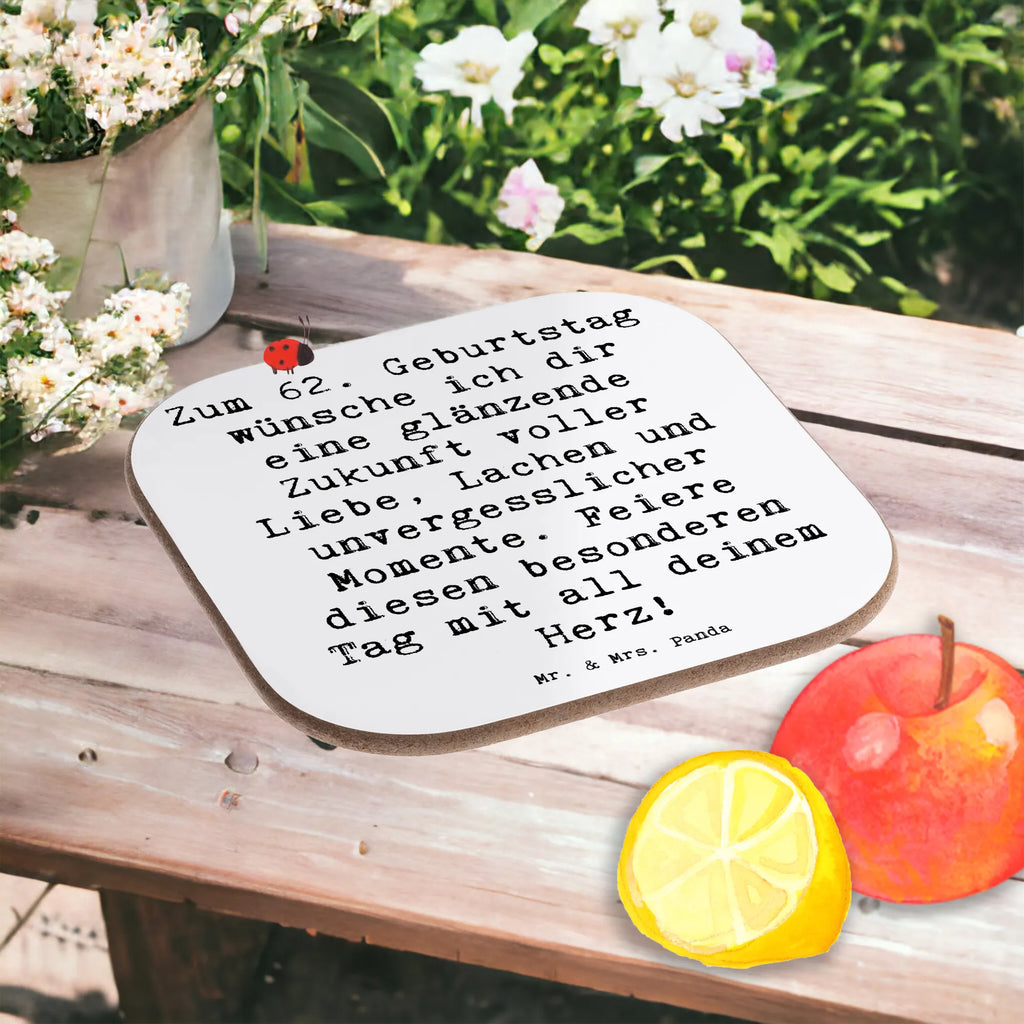 Zum 62. Geburtstag
wünsche ich dir
eine glänzende
Zukunft voller
Liebe, Lachen und
unvergesslicher
Momente. Feiere
diesen besonderen
Tag mit all deinem
Herz!
Mr. & Mrs. Panda